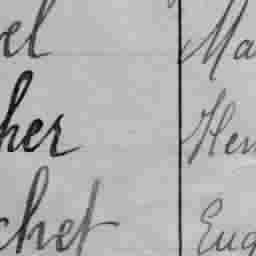 el Ma
her Hen
chet Eug